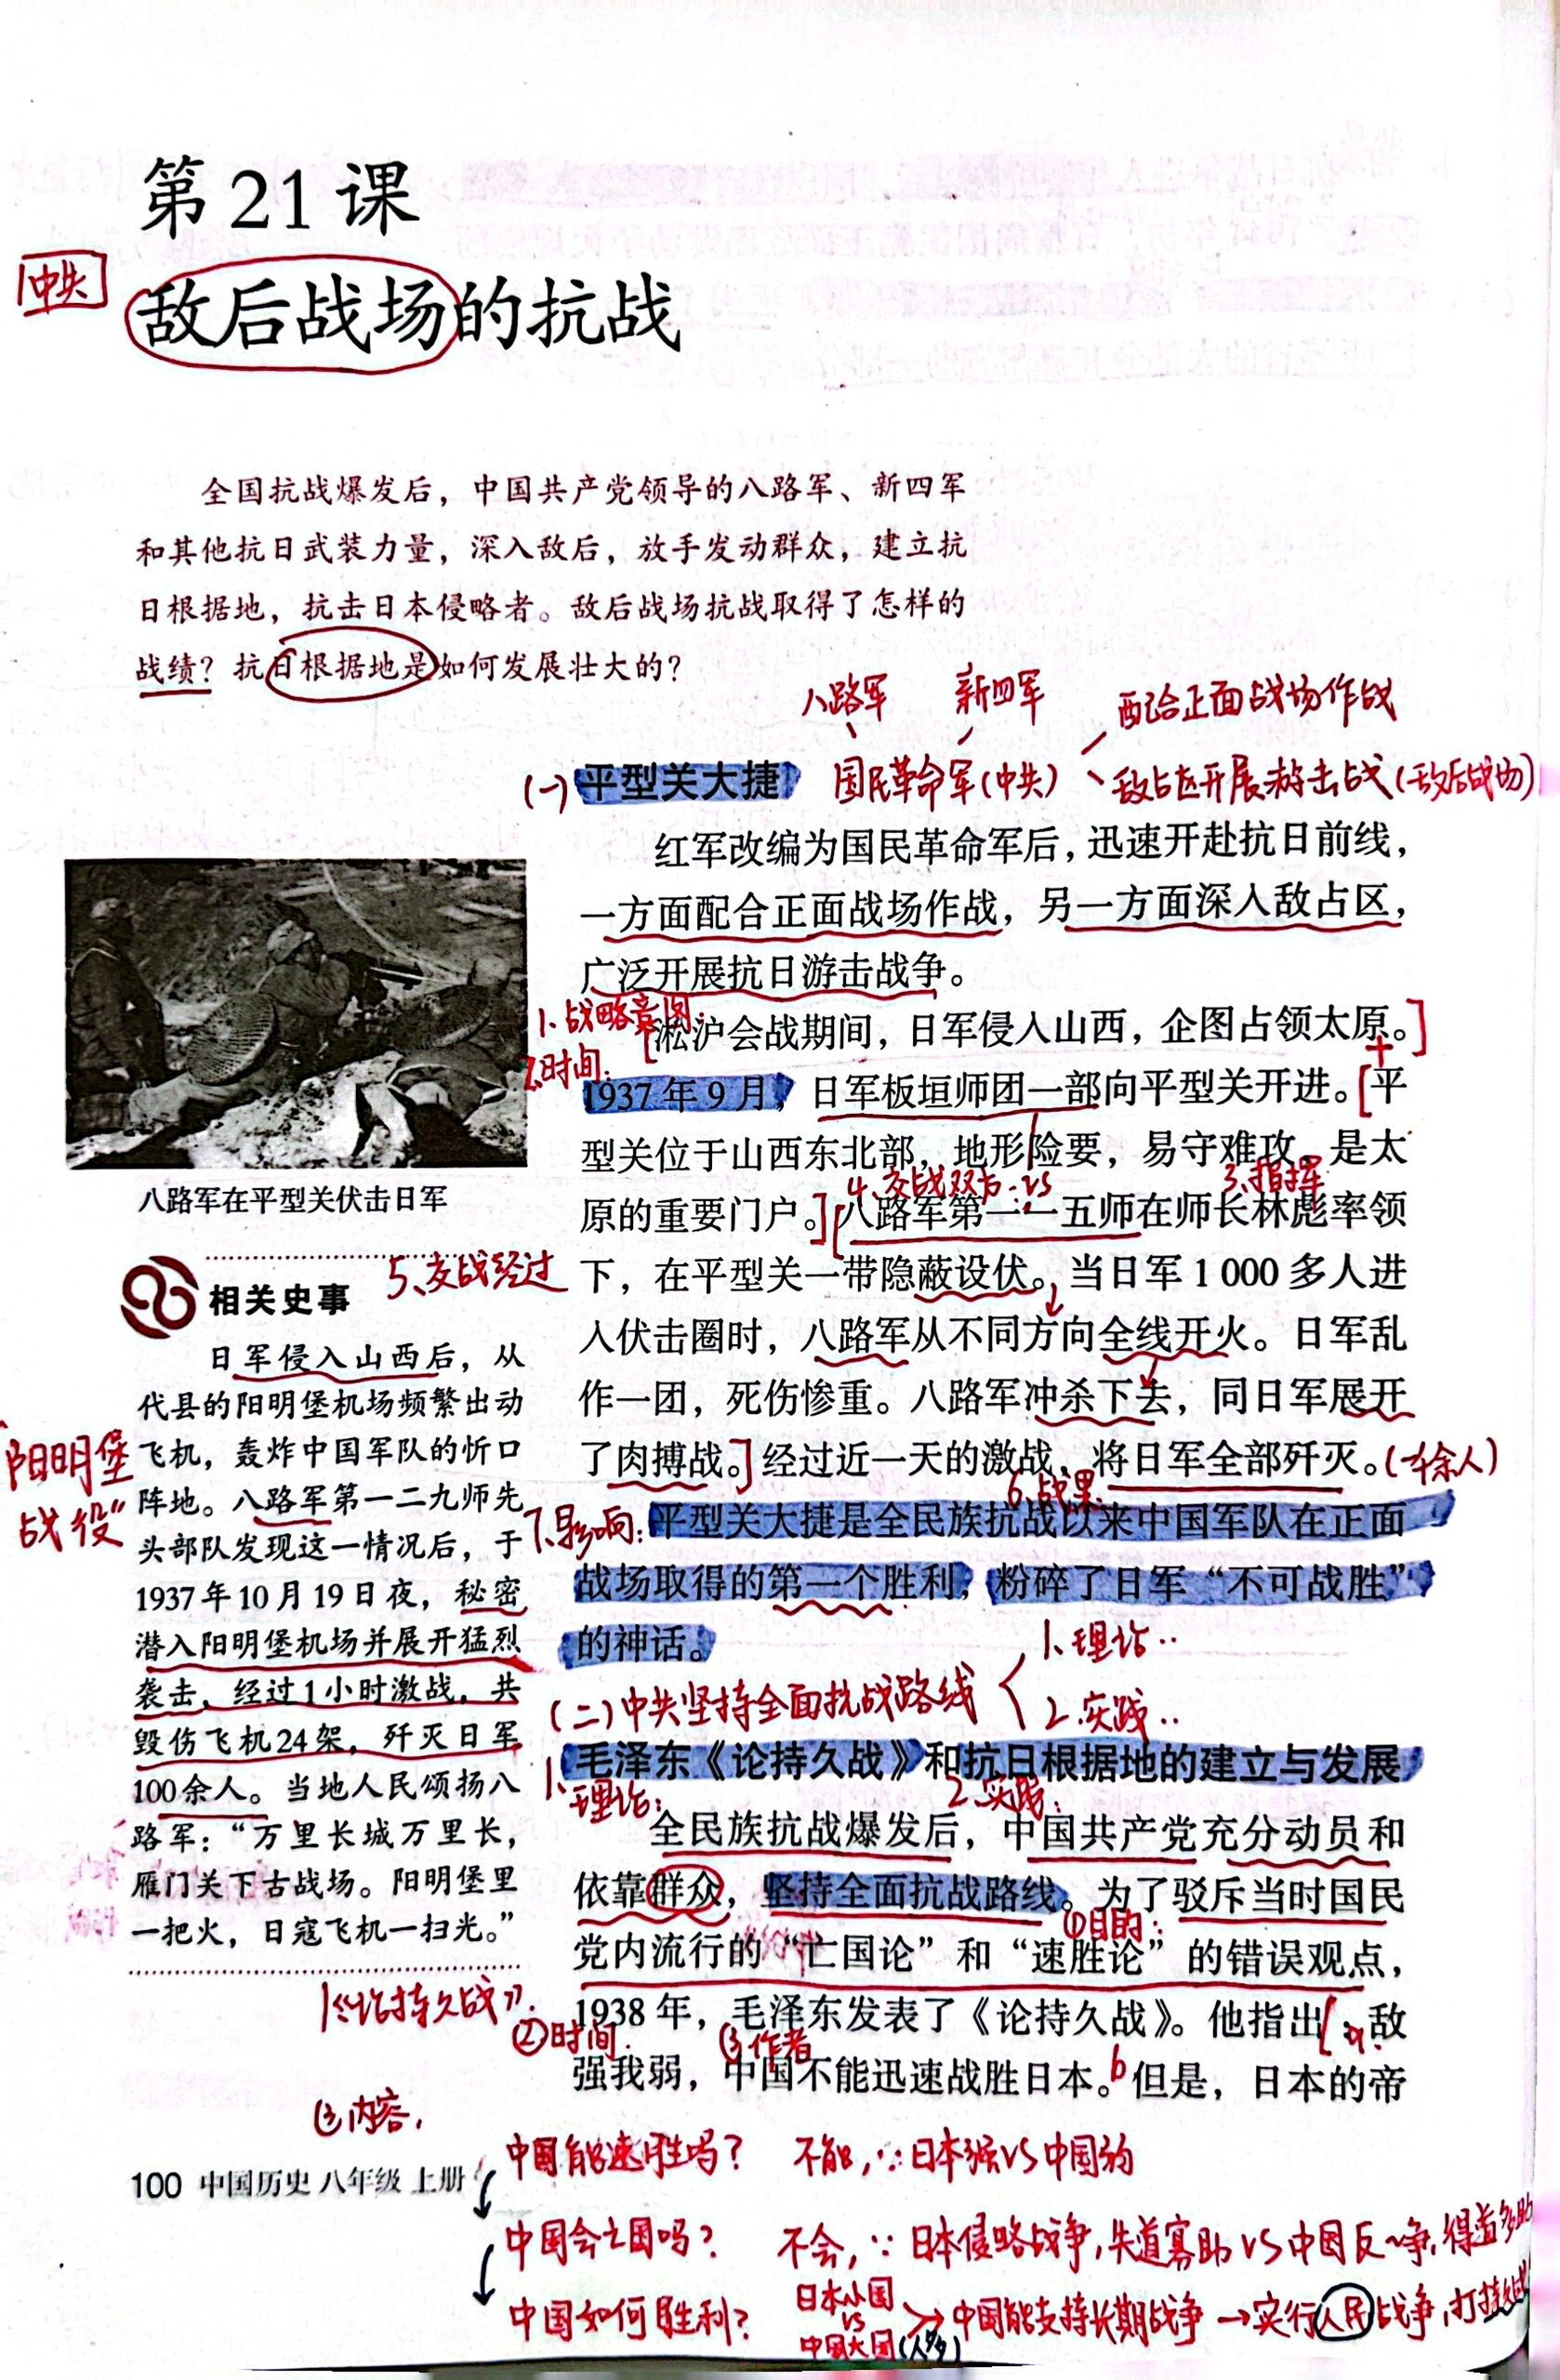 第 21 课
中共
敌后战场的抗战
全国抗战爆发后，中国共产党领导的八路军、新四军
和其他抗日武装力量，深入敌后，放手发动群众，建立抗
日根据地，抗击日本侵略者。敌后战场抗战取得了怎样的
战绩？抗日根据地是如何发展壮大的？
八路军 新四军 配合正面战场作战
(一) 平型关大捷 国民革命军(中共) 敌占区开展游击战(敌后战场)
红军改编为国民革命军后，迅速开赴抗日前线，
一方面配合正面战场作战，另一方面深入敌占区，
广泛开展抗日游击战争。
1、战略意图：
[淞沪会战期间，日军侵入山西，企图占领太原。]
2.时间：
1937 年 9 月，日军板垣师团一部向平型关开进。[平
型关位于山西东北部，地形险要，易守难攻，是太
4、交战双方：VS 3、指挥
原的重要门户。][八路军第一一五师在师长林彪率领
下，在平型关一带隐蔽设伏。当日军 1 000 多人进
入伏击圈时，八路军从不同方向全线开火。日军乱
作一团，死伤惨重。八路军冲杀下去，同日军展开
了肉搏战。]经过近一天的激战，将日军全部歼灭。(千余人)
6.战果
7.影响：平型关大捷是全民族抗战以来中国军队在正面
战场取得的第一个胜利，粉碎了日军“不可战胜”
的神话。
八路军在平型关伏击日军
5、交战经过
相关史事
日军侵入山西后，从
代县的阳明堡机场频繁出动
飞机，轰炸中国军队的忻口
阵地。八路军第一二九师先
头部队发现这一情况后，于
1937 年 10 月 19 日夜，秘密
潜入阳明堡机场并展开猛烈
袭击，经过1小时激战，共
毁伤飞机24架，歼灭日军
100余人。当地人民颂扬八
路军：“万里长城万里长，
雁门关下古战场。阳明堡里
一把火，日寇飞机一扫光。”
“阳明堡
战役”
(二)中共坚持全面抗战路线 1、理论..
2.实践..
毛泽东《论持久战》和抗日根据地的建立与发展
1、理论： 2.实践：
全民族抗战爆发后，中国共产党充分动员和
依靠群众，坚持全面抗战路线。为了驳斥当时国民
①目的：
党内流行的“亡国论”和“速胜论”的错误观点，
1《论持久战》：
1938 年，毛泽东发表了《论持久战》。他指出[：a.敌
②时间. ③作者
强我弱，中国不能迅速战胜日本。b但是，日本的帝
③内容，
中国能速胜吗？ 不能，∵日本强VS中国弱
100 中国历史 八年级 上册
中国会亡国吗？ 不会，∵日本侵略战争，失道寡助 VS 中国反~争，得道多助
中国如何胜利？ 日本小国 VS 中国大国(人多) → 中国能支持长期战争 → 实行人民战争，打持久战